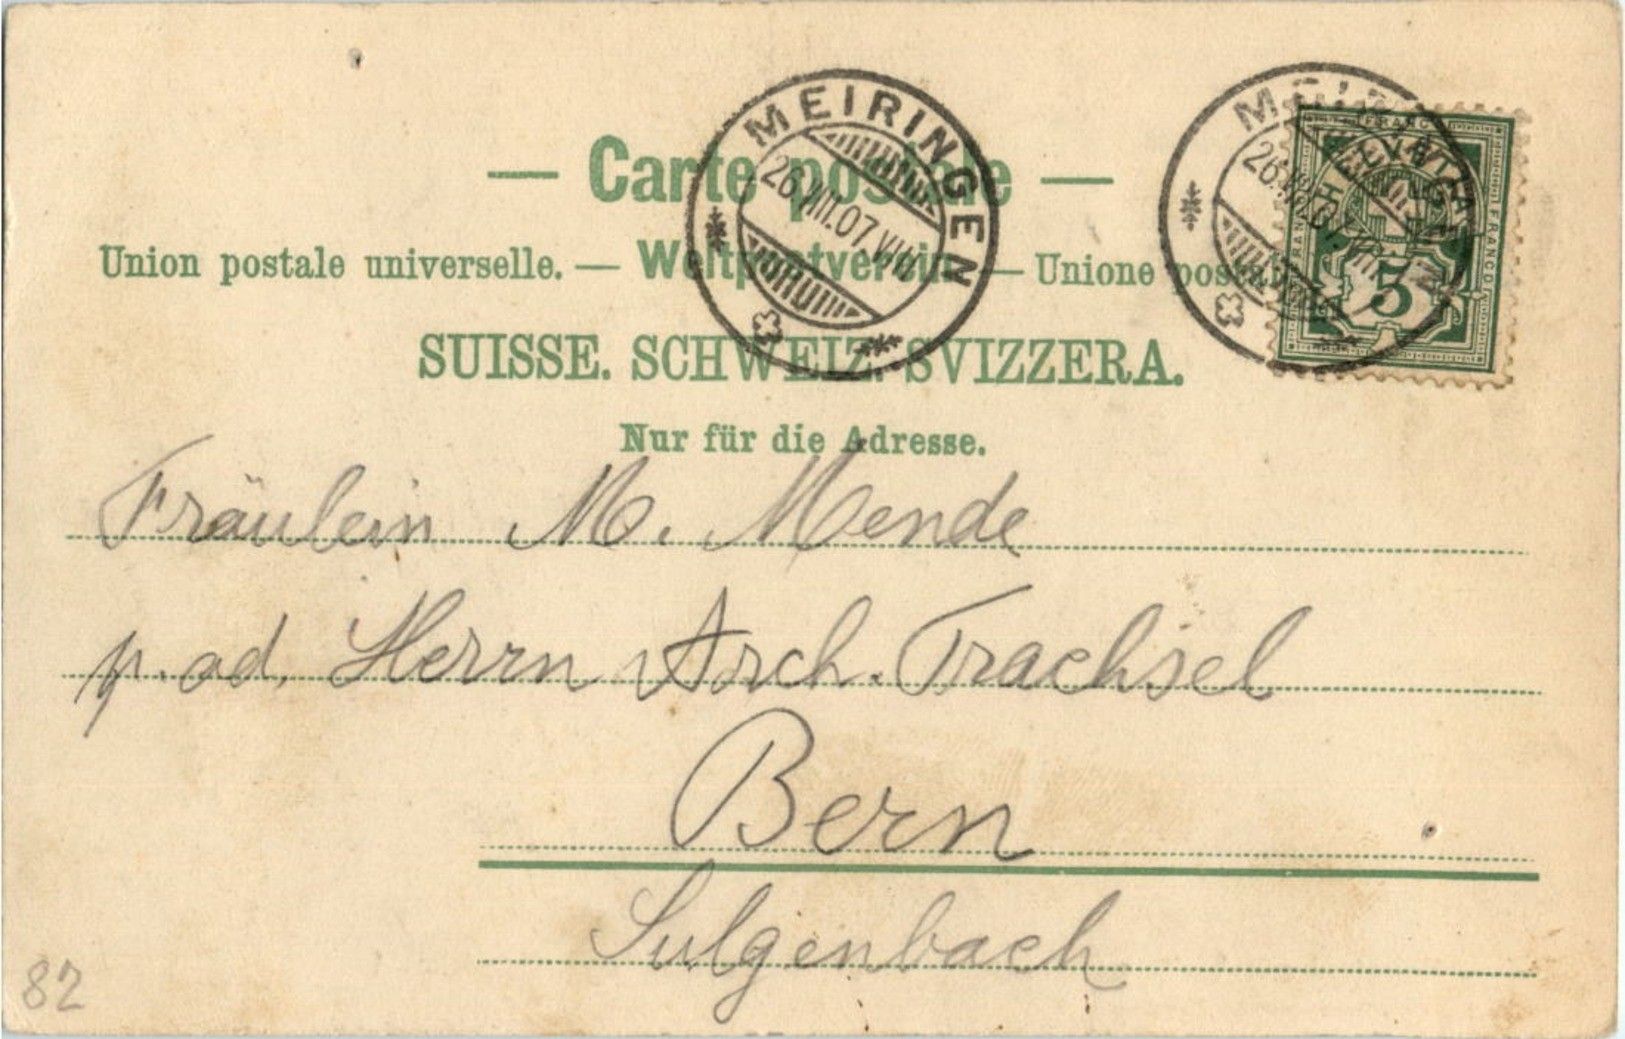 — Carte postale —
Union postale universelle. — Weltpostverein — Unione posta
SUISSE. SCHWEIZ. SVIZZERA.
Nur für die Adresse.
MEIRINGEN
26.VIII.07.VIII
FRANCO
HELVETIA
5
Fräulein M. Mende
p. ad. Herrn Arch. Trachsel
Bern
Sulgenbach
82